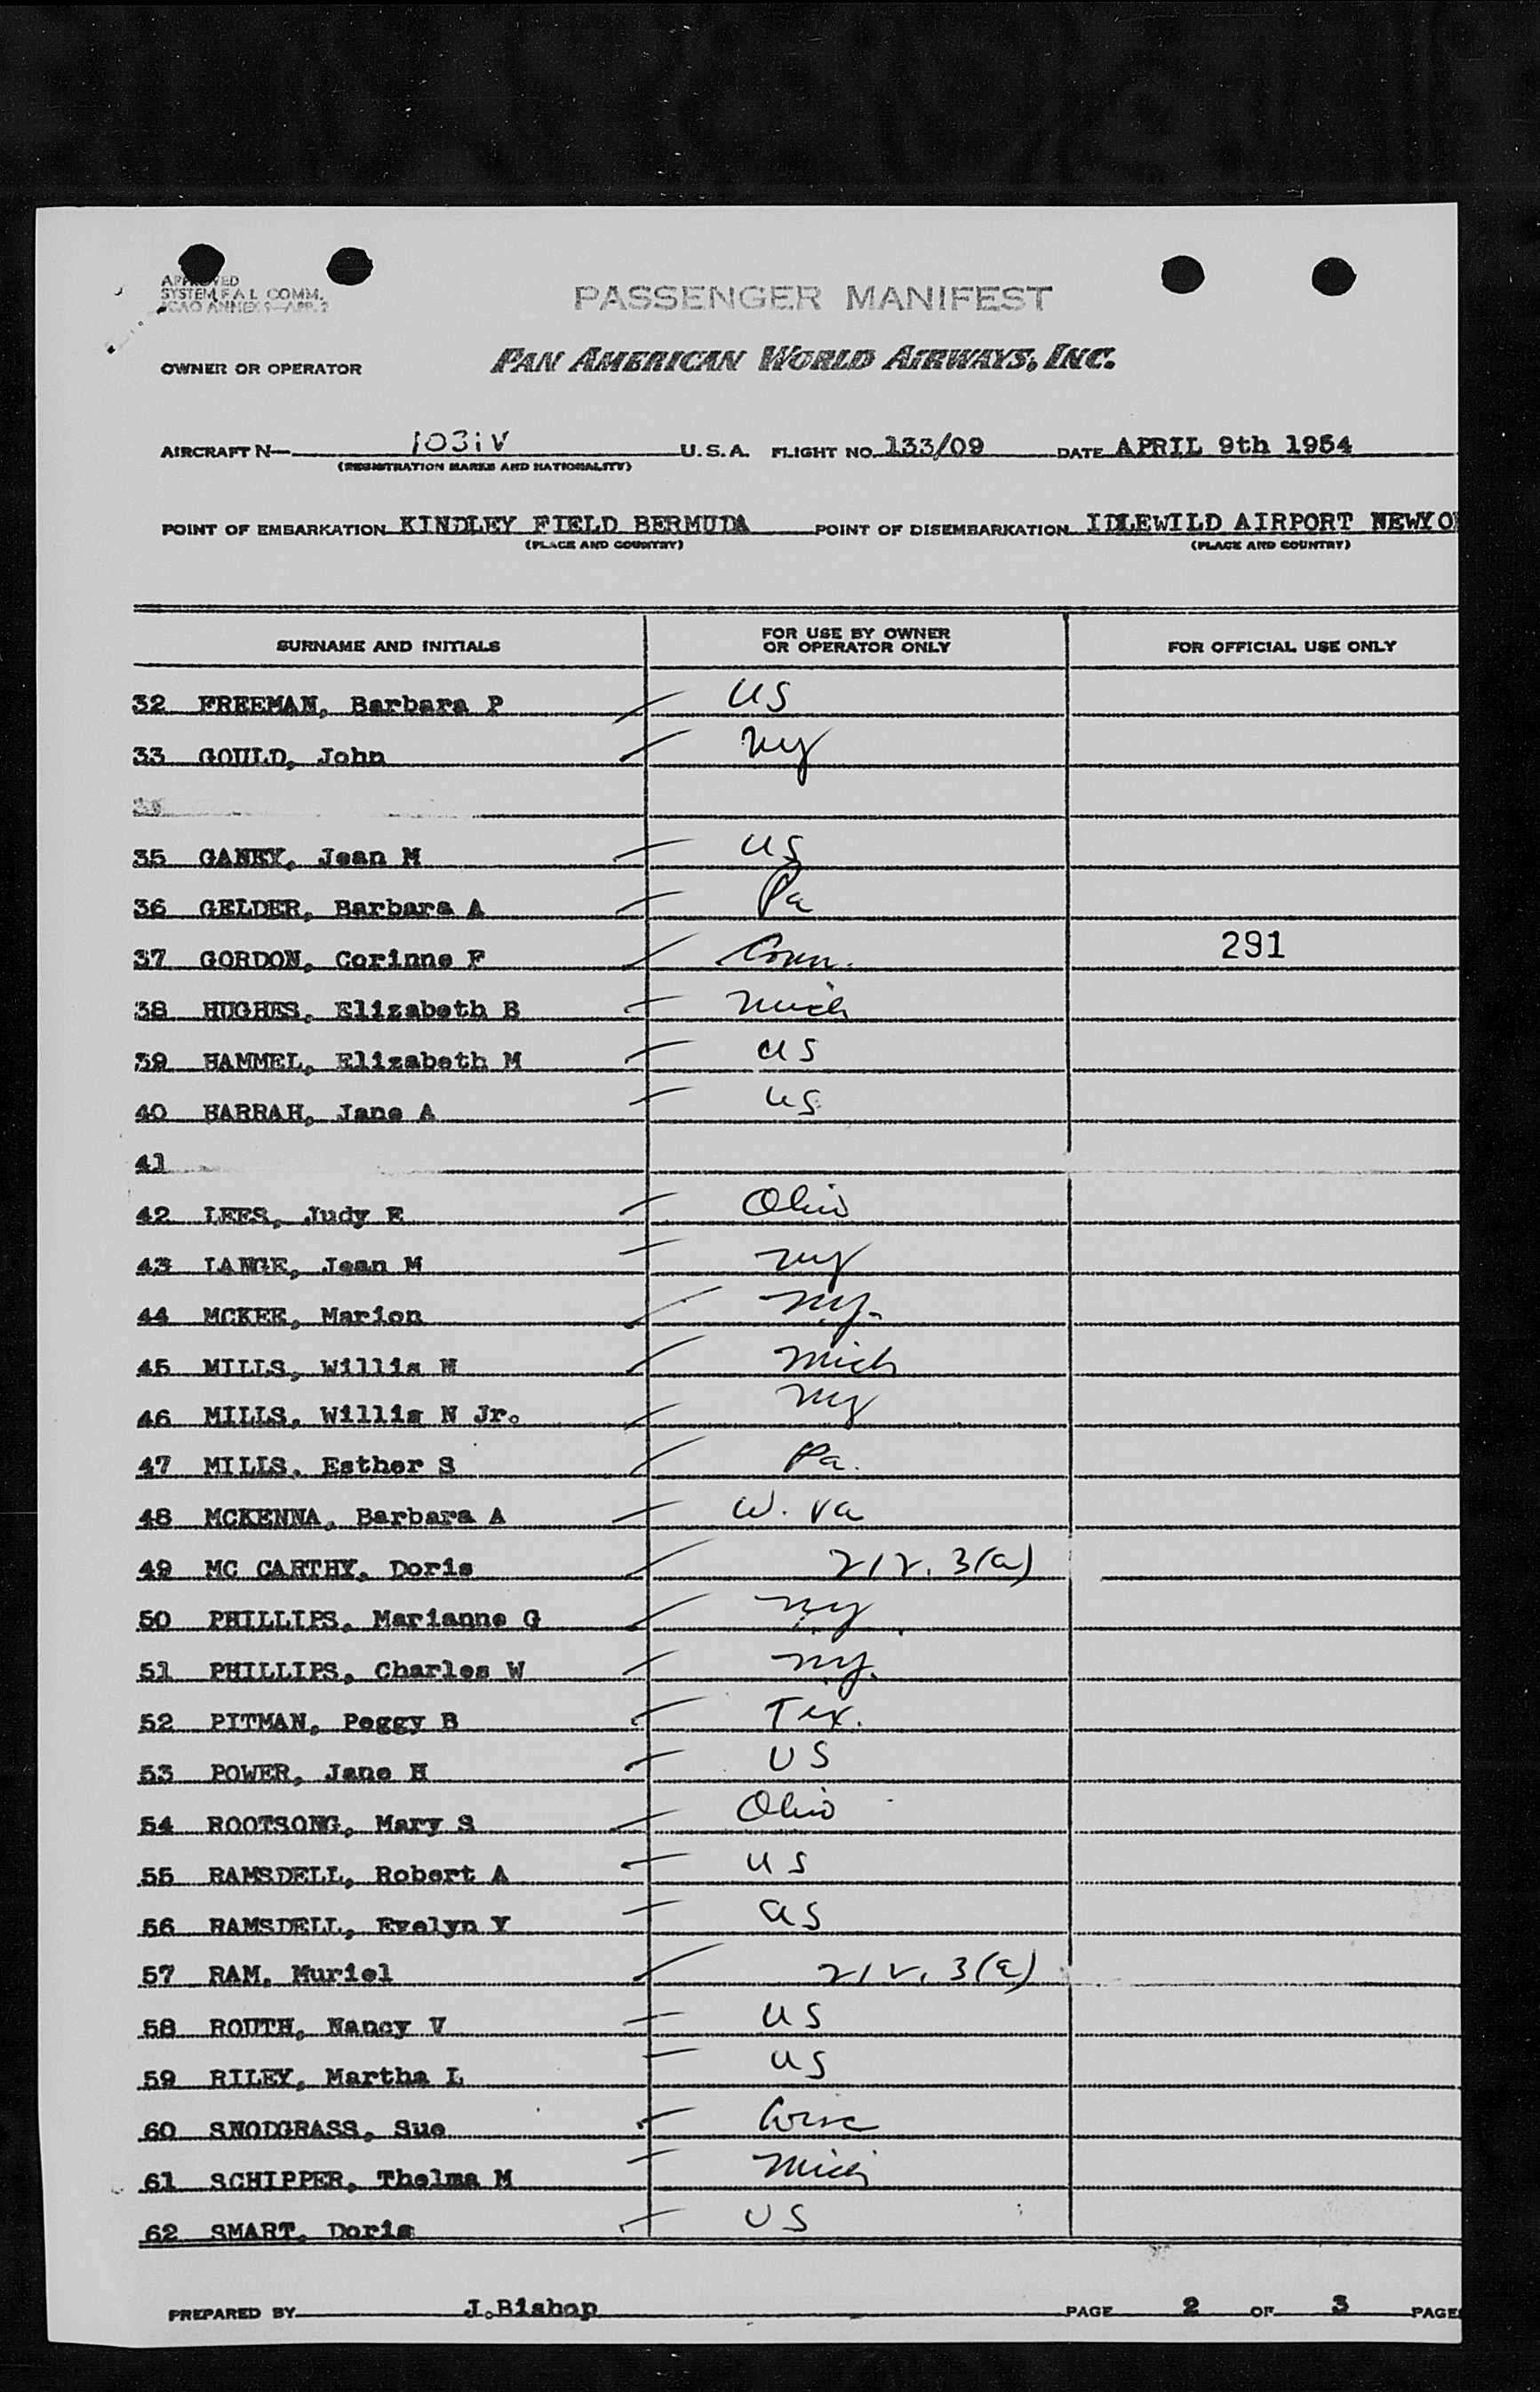 APPROVED
SYSTEM F A L COMM.
ICAO ANNEX 9—APP. 2
PASSENGER MANIFEST
OWNER OR OPERATOR PAN AMERICAN WORLD AIRWAYS, INC.
AIRCRAFT N— 1031V U.S.A. FLIGHT NO. 133/09 DATE APRIL 9th 1954
(REGISTRATION MARKS AND NATIONALITY)
POINT OF EMBARKATION KINDLEY FIELD BERMUDA POINT OF DISEMBARKATION IDLEWILD AIRPORT NEWYO
(PLACE AND COUNTRY) (PLACE AND COUNTRY)
SURNAME AND INITIALS FOR USE BY OWNER OR OPERATOR ONLY FOR OFFICIAL USE ONLY
32 FREEMAN, Barbara P US
33 GOULD, John NY
35 GANEY, Jean M US
36 GELDER, Barbara A Pa
37 GORDON, Corinne F Conn. 291
38 HUGHES, Elizabeth B Mich
39 HAMMEL, Elizabeth M US
40 HARRAH, Jane A US
41
42 LEES, Judy E Ohio
43 LANGE, Jean M NY
44 MCKEE, Marion NY.
45 MILLS, Willis N Mich
46 MILLS, Willis N Jr. NY
47 MILLS, Esther S Pa.
48 MCKENNA, Barbara A W. Va
49 MC CARTHY, Doris 212.3(a)
50 PHILLIPS, Marianne G NY
51 PHILLIPS, Charles W NY.
52 PITMAN, Peggy B Tex.
53 POWER, Jane H US
54 ROOTSONG, Mary S Ohio
55 RAMSDELL, Robert A US
56 RAMSDELL, Evelyn Y US
57 RAM, Muriel 212.3(a)
58 ROUTH, Nancy V US
59 RILEY, Martha L US
60 SNODGRASS, Sue Wisc
61 SCHIPPER, Thelma M Mich
62 SMART, Doris US
PREPARED BY J.Bishop PAGE 2 OF 3 PAGE